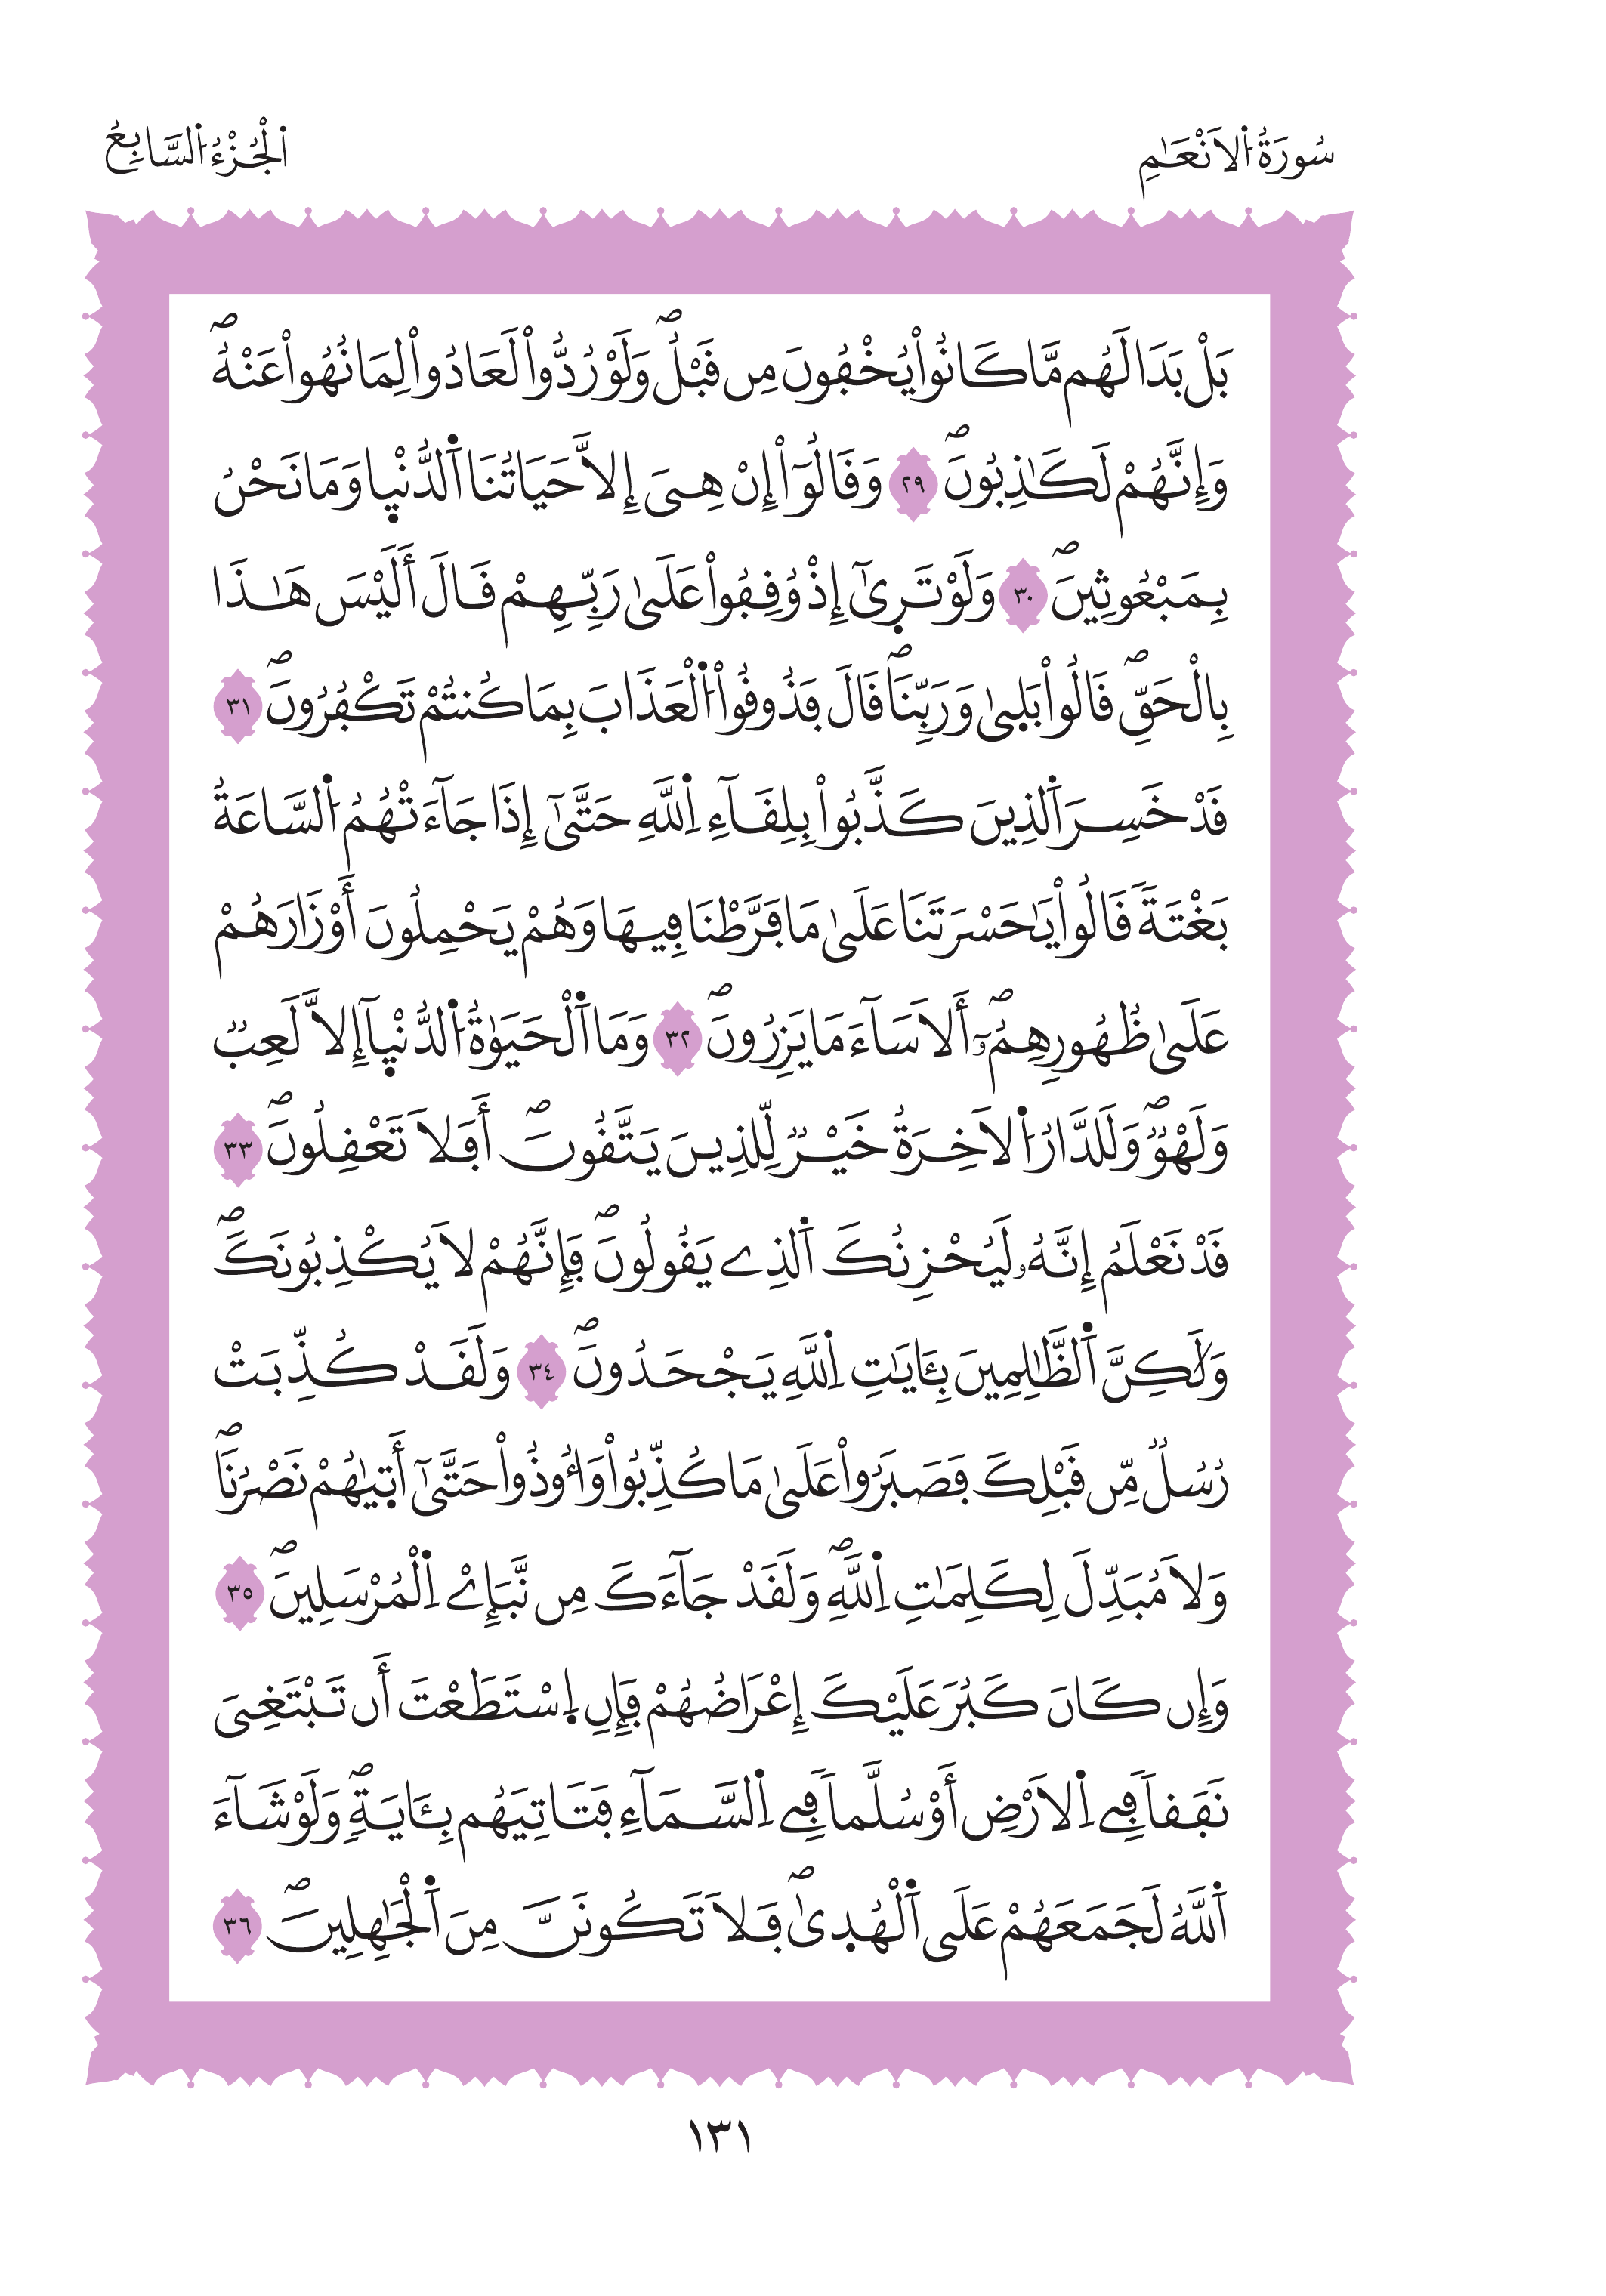 سُورَةُ اُ۬لَانْعَٰمِ
اَ۬لْجُزْءُ اُ۬لسَّابِعُ
بَلْ بَدَا لَهُم مَّا كَانُواْ يُخْفُونَ مِن قَبْلُۖ وَلَوْ رُدُّواْ لَعَادُواْ لِمَا نُهُواْ عَنْهُۖ
وَإِنَّهُمْ لَكَٰذِبُونَۖ ٢٩ وَقَالُوٓاْ إِنْ هِيَ إِلَّا حَيَاتُنَا اَ۬لدُّنْي۪ا وَمَا نَحْنُ
بِمَبْعُوثِينَۖ ٣٠ وَلَوْ تَر۪ىٰٓ إِذْ وُقِفُواْ عَلَىٰ رَبِّهِمْ قَالَ أَلَيْسَ هَٰذَا
بِالْحَقِّۖ قَالُواْ بَل۪ىٰ وَرَبِّنَاۖ قَالَ فَذُوقُواْ اُ۬لْعَذَابَ بِمَا كُنتُمْ تَكْفُرُونَۖ ٣١
قَدْ خَسِرَ اَ۬لذِينَ كَذَّبُواْ بِلِقَآءِ اِ۬للَّهِ حَتَّىٰٓ إِذَا جَآءَتْهُمُ اُ۬لسَّاعَةُ
بَغْتَةٗ قَالُواْ يَٰحَسْرَتَنَا عَلَىٰ مَا فَرَّطْنَا فِيهَا وَهُمْ يَحْمِلُونَ أَوْزَارَهُمْ
عَلَىٰ ظُهُورِهِمُۥٓۖ أَلَا سَآءَ مَا يَزِرُونَۖ ٣٢ وَمَا اَ۬لْحَيَوٰةُ اُ۬لدُّنْي۪آ إِلَّا لَعِبٞ
وَلَهْوٞۖ وَلَلدَّارُ اُ۬لَاخِرَةُ خَيْرٞ لِّلذِينَ يَتَّقُونَۖ أَفَلَا تَعْقِلُونَۖ ٣٣
قَدْ نَعْلَمُ إِنَّهُۥ لَيُحْزِنُكَ اَ۬لذِے يَقُولُونَۖ فَإِنَّهُمْ لَا يُكْذِبُونَكَۖ
وَلَٰكِنَّ اَ۬لظَّٰلِمِينَ بِـَٔايَٰتِ اِ۬للَّهِ يَجْحَدُونَۖ ٣٤ وَلَقَدْ كُذِّبَتْ
رُسُلٞ مِّن قَبْلِكَ فَصَبَرُواْ عَلَىٰ مَا كُذِّبُواْ وَأُوذُواْ حَتَّىٰٓ أَت۪يٰهُمْ نَصْرُنَاۖ
وَلَا مُبَدِّلَ لِكَلِمَٰتِ اِ۬للَّهِۖ وَلَقَدْ جَآءَكَ مِن نَّبَإِےْ اِ۬لْمُرْسَلِينَۖ ٣٥
وَإِن كَانَ كَبُرَ عَلَيْكَ إِعْرَاضُهُمْ فَإِنِ اِ۪سْتَطَعْتَ أَن تَبْتَغِيَ
نَفَقاٗ فِے اِ۬لَارْضِ أَوْ سُلَّماٗ فِے اِ۬لسَّمَآءِ فَتَاتِيَهُم بِـَٔايَةٖۖ وَلَوْ شَآءَ
اَ۬للَّهُ لَجَمَعَهُمْ عَلَى اَ۬لْهُد۪ىٰۖ فَلَا تَكُونَنَّ مِنَ اَ۬لْجَٰهِلِينَۖ ٣٦
١٣١